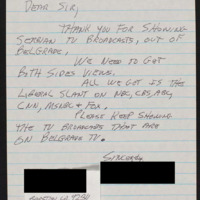 Dear Sir,
Thank you for showing
Serbian TV broadcasts, out of
Belgrade.
We need to get
both sides views.
All we get is the
liberal slant on NBC, CBS, ABC,
CNN, MSNBC & Fox.
Please keep showing
the TV broadcasts that are
on Belgrade TV.
Sincerely